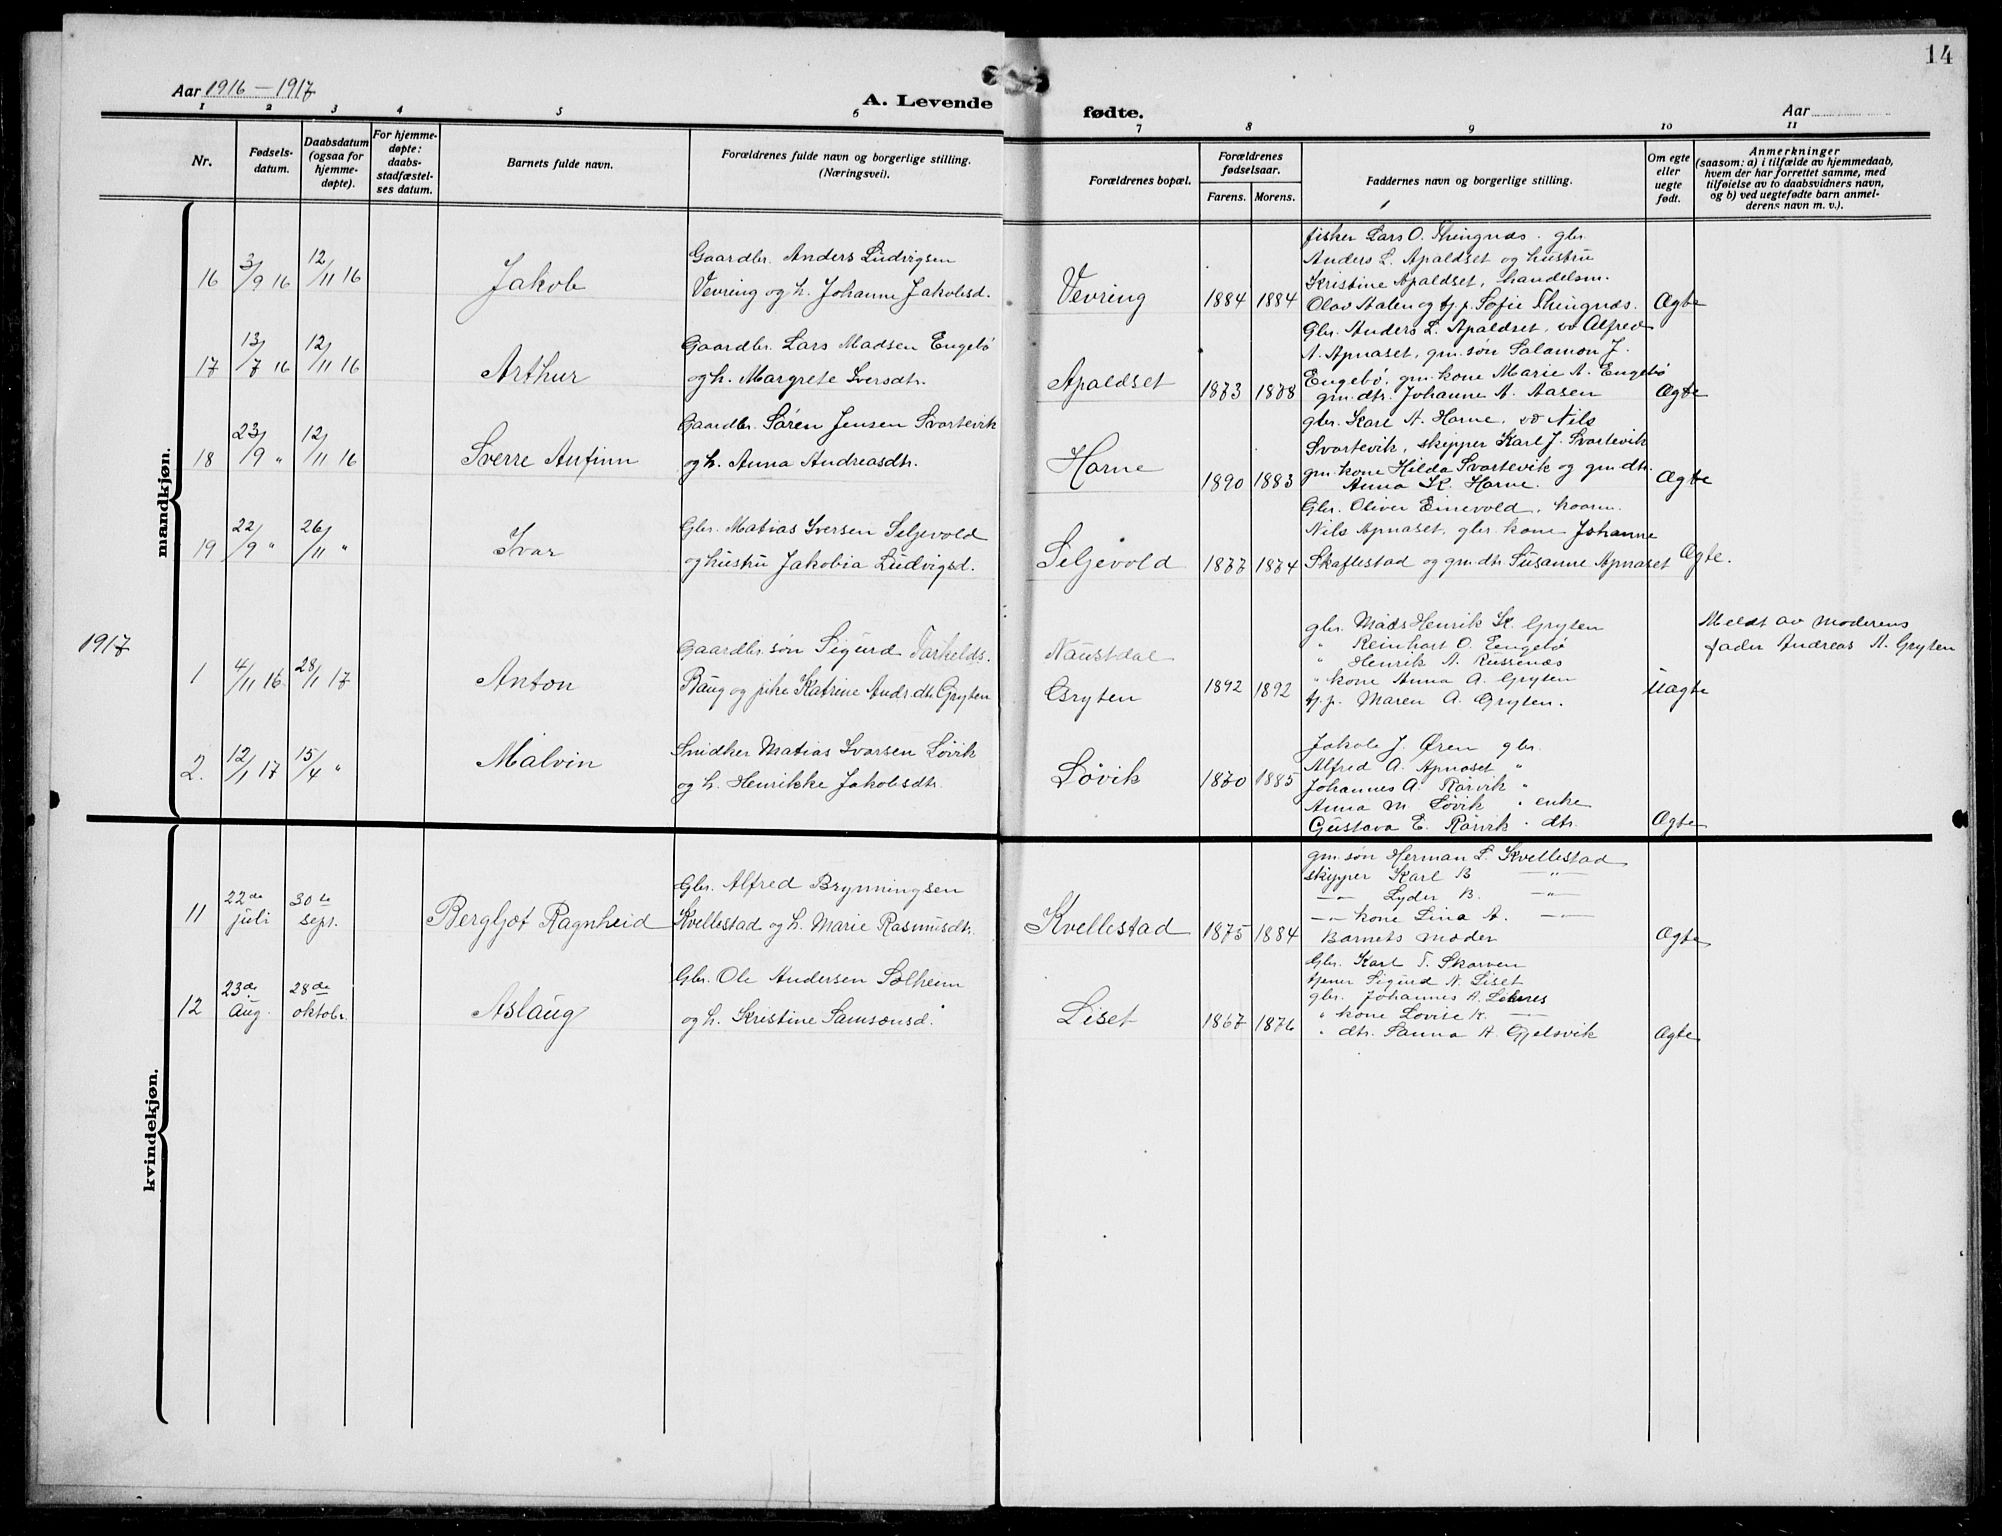 14
Aar 1916 – 1917
A. Levende
fødte.
Aar
1 2 3 4 5 6 7 8 9 10 11
Nr.
Fødsels-
datum.
Daabsdatum
(ogsaa for
hjemme-
døpte).
For hjemme-
døpte:
daabs-
stadfæstel-
ses datum.
Barnets fulde navn.
Forældrenes fulde navn og borgerlige stilling.
(Næringsvei).
Forældrenes bopæl.
Forældrenes
fødselsaar.
Farens. Morens.
Faddernes navn og borgerlige stilling.
Om egte
eller
uegte
født.
Anmerkninger
(saasom: a) i tilfælde av hjemmedaab,
hvem der har forrettet samme, med
tilføielse av to daabsvidners navn,
og b) ved uegtefødte barn anmel-
derens navn m. v.).
mandkjøn.
16
3/9 16
12/11 16
Jakob
Gaardbr. Anders Ludvigsen
Vevring og h. Johanne Jakobsd.
Vevring
1884 1884
fisker Lars O. Thingnæs. gbr.
Anders L. Apaldset og hustru
Kristine Apaldset, handelsm.
Olav Aalen og tj. p. Sofie Thingnæs.
Ægte
17
13/7 16
12/11 16
Arthur
Gaardbr. Lars Madsen Engebø
og h. Margrete Iversdtr.
Apaldset
1873 1878
Gbr. Anders L. Apaldset, Alfred
A. Apnaset, gm. søn Salamon J.
Engebø, gm. kone Marie A. Engebø
gm. dtr. Johanne A. Aasen
Ægte
18
23/9 "
12/11 16
Sverre Anfinn
Gaardbr. Søren Jensen Svortevik
og h. Anna Andreasdtr.
Horne
1890 1883
gbr. Karl A. Horne, Nils
Svortevik, skipper Karl J. Svortevik
gm. kone Hilda Svortevik og gm. dtr.
Anna K. Horne.
Ægte
19
22/9 "
26/11 "
Ivar
Gbr. Matias Iversen Seljevold
og hustru Jakobia Ludvigsd.
Seljevold
1877 1874
Gbr. Oliver Einevold,
Nils Apnaset, gbr. kone Johanne
Skaflestad og gm. dtr. Susanne Apnaset
Ægte.
1917
1
4/11 16.
28/1 17
Anton
Gaardbr. søn Sigurd Tarkelds.
Baug og pike Katrine Andr. dtr. Gryten
Naustdal
Gryten
1892 1892
gbr. Mads Henrik K. Gryten
" Reinhart O. Engebø
" Henrik A. Russenæs
" kone Anna A. Gryten
tj. p. Maren A. Gryten.
Uægte
Meldt av moderens
fader Andreas A. Gryten
2.
12/1 17
15/4 "
Malvin
Snidker Matias Ivarsen Løvik
og h. Henrikke Jakobsdtr.
Løvik
1870 1885
Jakob J. Øren gbr.
Alfred A. Apnaset "
Johannes A. Rørvik "
Anna M. Løvik " enke
Gustava E. Rørvik " dtr.
Ægte
kvindekjøn.
11
22de juli
30te sept.
Bergljot Ragnheid
Gbr. Alfred Brynningsen
Kvellestad og h. Marie Rasmusdtr.
Kvellestad
1875 1884
gm. søn Herman L. Kvellestad
skipper Karl B —"—
—"— Lyder B. —"—
—"— kone Lina A. —"—
Barnets moder
Ægte
12
23de Aug.
28de oktobr.
Aslaug
Gbr. Ole Andersen Solheim
og h. Kristine Samsonsd.
Liset
1867 1876
Gbr. Karl T. Skorven
tjener Sigurd N. Liset
gbr. Johannes A.
" kone Lovise K. —"—
" dtr. Sanna A. Gjelsvik
Ægte